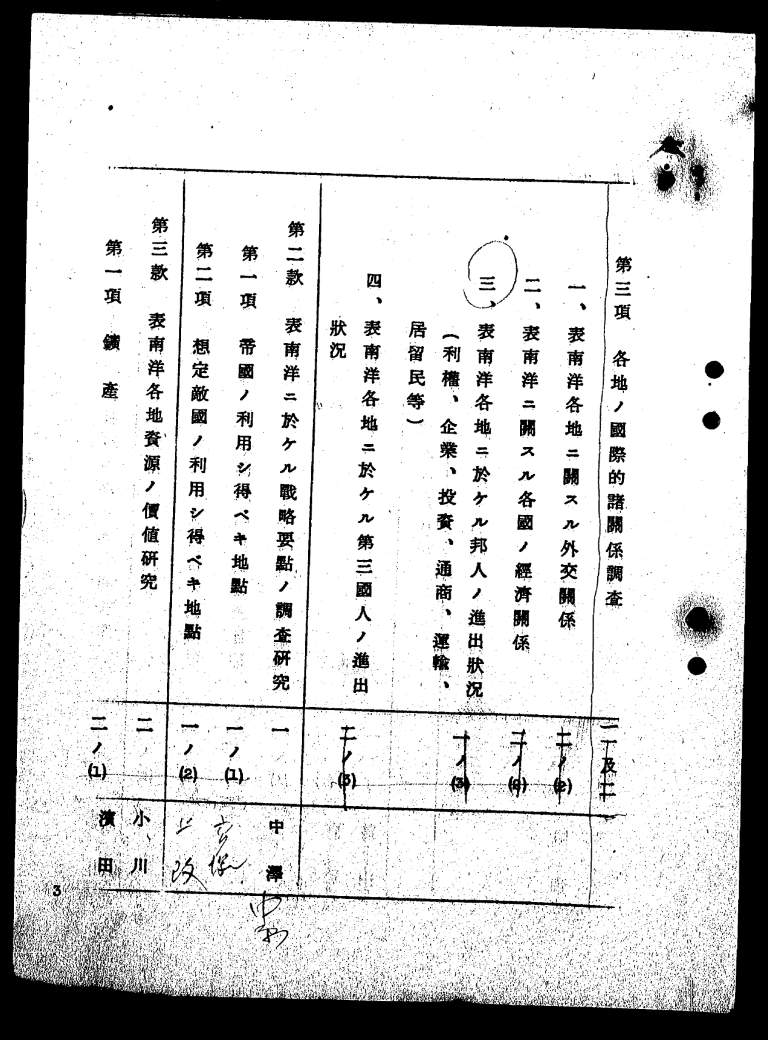 第三項 各地ノ國際的諸關係調査 一及二
一、表南洋各地ニ關スル外交關係 二ノ(2)
二、表南洋ニ關スル各國ノ經濟關係 二ノ(2)
三、表南洋各地ニ於ケル邦人ノ進出狀況
(利權、企業、投資、通商、運輸、 一ノ(3)
居留民等)
四、表南洋各地ニ於ケル第三國人ノ進出 二ノ(3)
狀況
第二款 表南洋ニ於ケル戰略要點ノ調査研究 一 中澤
第一項 帝國ノ利用シ得ベキ地點 一ノ(1)
第二項 想定敵國ノ利用シ得ベキ地點 一ノ(2)
第三款 表南洋各地資源ノ價値研究 二 小川
第一項 鑛產 二ノ(1) 濱田
3